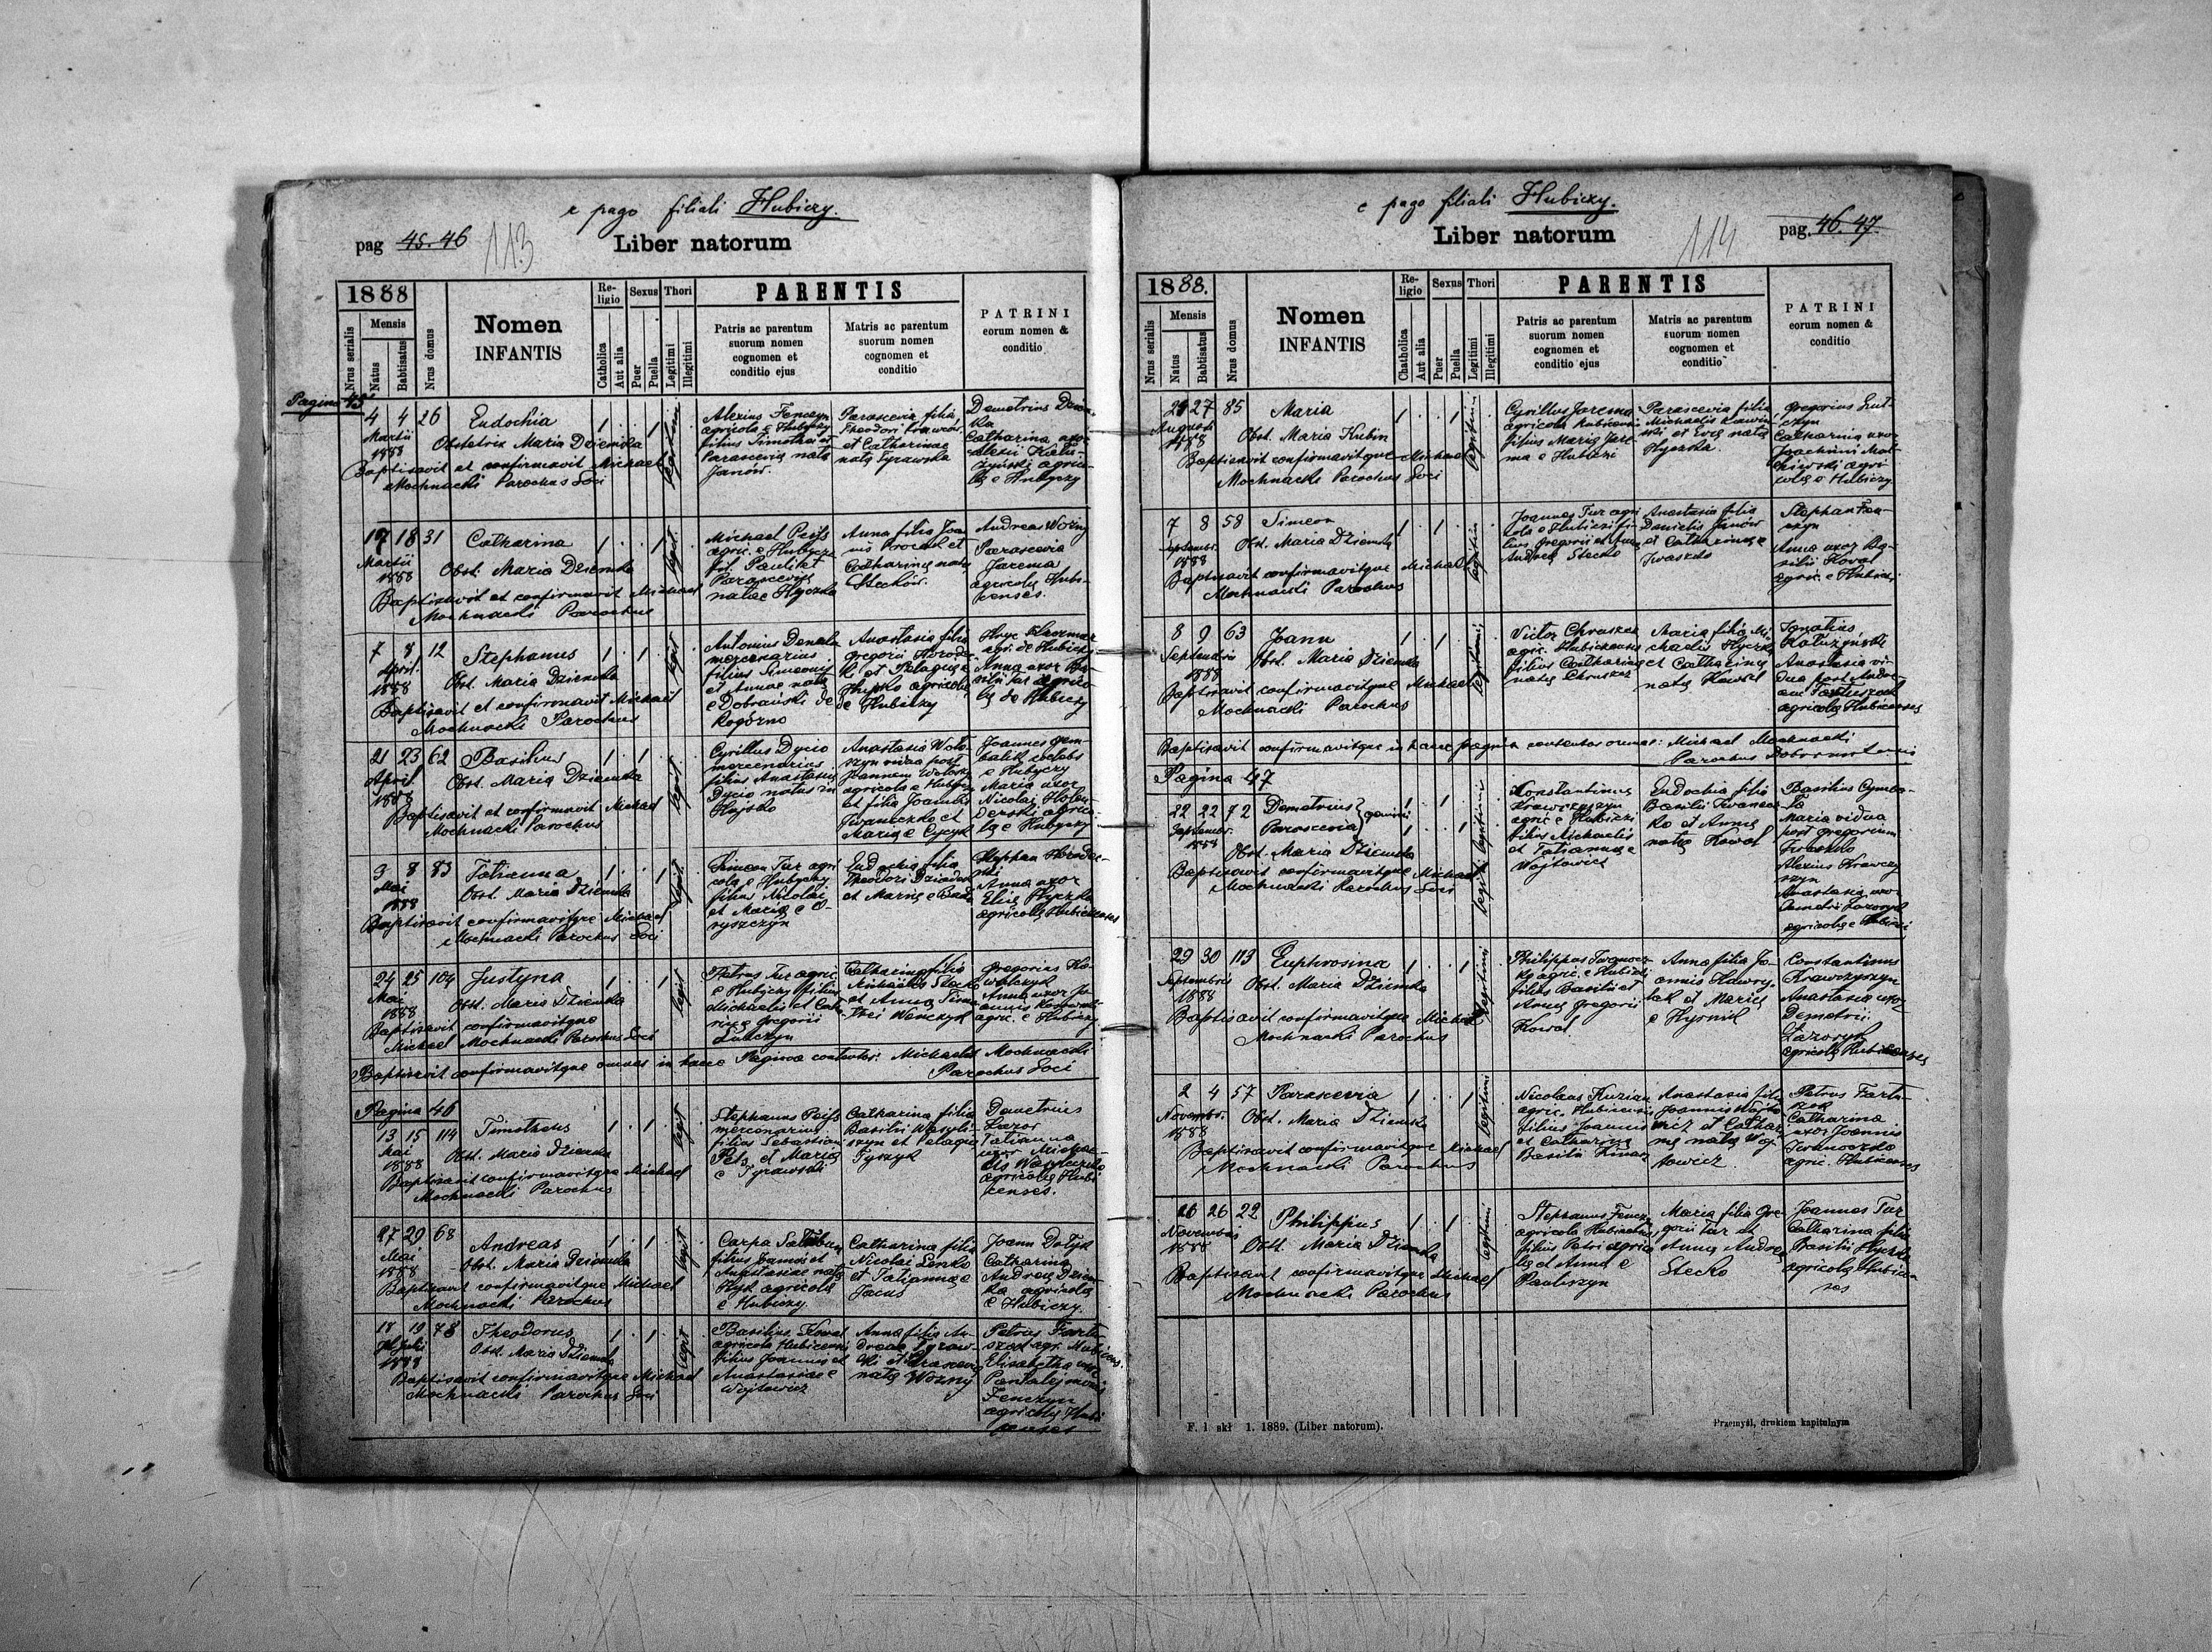 e pago filiali Hubiczy.
pag 45. 46
113
Liber natorum
1888
Nrus serialis
Mensis
Natus
Babtisatus
Nrus domus
Nomen
INFANTIS
Re-
ligio
Catholica
Aut alia
Sexus
Puer
Puella
Thori
Legitimi
Illegitimi
PARENTIS
Patris ac parentum
suorum nomen
cognomen et
conditio ejus
Matris ac parentum
suorum nomen
cognomen et
conditio
PATRINI
eorum nomen &
conditio
Pagina 45
4 4 26 Eudochia 1 . . 1
Martii
1888
Obstetrix Maria Dziemka
Baptisavit et confirmavit Michael
Mochnacki Parochus Loci
legitimi
Alexius Fenczyn
agricola e Hubiczy
filius Timothei et
Parasceviae nata
Janów.
Parascevia filia
Theodori
et Catharinae
nata Tyrawska
Demetrius
Catharina uxor
Alexii
agrico-
lę e Hubyczy
17 18 31 Catharina 1 . . 1
Martii
1888
Obst. Maria Dziemka
Baptisavit et confirmavit Michael
Mochnacki Parochus
legit
Michael
agric. e Hubycze
fil. Pauli et
Parascevię
natae Hyczka
Anna filia Joan-
nis et
Catharinę natę
Steckiw.
Andreas Wozny
Parascevia
Jarema
agricolę Hubi-
censes.
7 8 12 Stephanus 1 . 1
April.
1888
Obst. Maria Dziemka
Baptisavit et confirmavit Michael
Mochnacki Parochus
legit
Antonius
mercenarius
filius Simeonis
et Annae nata
e Dobranski de
Rogózno
Anastasia filia
Gregorii
et Pelagiae
agricolę
de Hubiczy
agr. de Hubiczy
Anna uxor Ba-
silii Tur agrico-
lę de Hubiczy
21 23 62 Basilius 1 . 1
April
1888
Obst. Maria Dziemka
Baptisavit et confirmavit Michael
Mochnacki Parochus
legit
Cyrillus Dycio
mercenarius
filius Anastasię
Dycio natus in
Hujsko
Anastasia Woło-
szyn vidua post
Joannem Wołoszyn
agricola e Hubiczy
et filia Joannis
Iwaneczko et
Marię e Cycyk
Joannes Gem-
balik coelebs
e Hubyczy
Maria uxor
Nicolai Holen-
derski agrico-
lę e Hubyczy
3 8 83 Tatianna 1 . . 1
Mai
1888
Obst. Maria Dziemka
Baptisavit confirmavitque Michael
Mochnacki Parochus Loci
legit
Simeon Tur agri
cola e Hubyczy
filius Nicolai
et Marię e O-
ryszczyn
Eudochia filia
Theodori
et Marię e
Stephan Horodec-
ki
Anna uxor
Elię Hyczka
agricolę Hubicenses
24 25 104 Justyna 1 . . 1
Mai
1888
Obst. Maria Dziemka
Baptisavit confirmavitque
Michael Mochnacki Parochus Loci
legit
Petrus Tur agric
e Hubiczy filius
Michaelis et Catha
rinę Gregorii
Lutczyn
Catharina filia
Michaelis Stecko
et Anna Timo
thei Wanczyk
Gregorius Ko-
walczyk
Anna uxor Jo-
annis
agric. e Hubiczy
Baptisavit confirmavitque omnes in hacce Pagina contentos: Michael Mochnacki
Parochus Loci
Pagina 46
13 15 114 Timotheus 1 . 1
Mai
1888
Obst. Maria Dziemka
Baptisavit confirmavitque Michael
Mochnacki Parochus
legit
Stephanus
mercenarius
filius Sebastiani
et Marię
e Tyrawski
Catharina filia
Basilii Wasyli-
szyn et Pelagia
Tyszyk
Demetrius
Łazor
Tatianna
uxor Michae-
lis
agricolę Hubi
censes.
27 29 68 Andreas 1 . 1
Mai
1888
Obst. Maria Dziemka
Baptisavit confirmavitque Michael
Mochnacki Parochus
legit
Carpa
filius et
Anastasiae nata
Hyk agricola
e Hubiczy.
Catharina filia
Nicolai Senko
et Tatiannę e
Jacus
Joann Dołyk
Catharina
Andreę Dziem
ka agricolę
e Hubiczy.
18 19 78 Theodorus 1 . 1
Julii
1888
Obst. Maria Dziemka
Baptisavit confirmavitque Michael
Mochnacki Parochus Loci
legit
Basilius Kowal
agricola Hubicensis
filius Joannis et
Anastasiae e
Wojtowicz
Anna filia An-
dreae Tyraw-
ski et Parascevię
natę Wozny
Petrus Fartu-
szok agr. Hubicens.
Elisabetha uxor
Pantalejmonis
Fenczyn
agricolę Hubi
censes
e pago filiali Hubiczy.
Liber natorum
114
pag. 46. 47.
1888.
Nrus serialis
Mensis
Natus
Babtisatus
Nrus domus
Nomen
INFANTIS
Re-
ligio
Chatholica
Aut alia
Sexus
Puer
Puella
Thori
Legitimi
Illegitimi
PARENTIS
Patris ac parentum
suorum nomen
cognomen et
conditio ejus
Matris ac parentum
suorum nomen
cognomen et
conditio
PATRINI
eorum nomen &
conditio
27 85 Maria 1 . . 1
Augusti
1888
Obst. Maria Kubin
Baptisavit confirmavitque Michael
Mochnacki Parochus Loci
legitimi
Cyrillus Jarema
agricola Hubicensis
filius Marię Jare
ma e Hubiczi
Parascevia filia
Michaelis
et Evę natę
Hyczka.
Gregorius Lut-
czyn
Catharina uxor
Joachimi
agri
colę e Hubiczy
7 8 58 Simeon 1 . 1
Septembr.
1888
Obst. Maria Dziemka
Baptisavit confirmavitque Michael
Mochnacki Parochus
legitimi
Joannes Tur agri
cola e Hubiczi fi-
lius Gregorii et
Andreę Stecko
Anastasia filia
Danielis Janów
et Catharinae
Iwaszko
Stephan
Anna uxor Ba-
silii Kowal
agric. e Hubiczi
8 9 63 Joann 1 . 1
Septembris
1888
Obst. Maria Dziemka
Baptisavit confirmavitque Michael
Mochnacki Parochus
legitimi
Victor Chruszcz
agric. Hubicensis
filius Catharinę
natę Chruszcz
Maria filia Mi-
chaelis Hyczka
et Catharinę
natę Kowal
Ignatius
Kałużyński
Anastasia vi-
dua post Andre-
am Fartuszok
agricolę Hubicenses
Baptisavit confirmavitque in hacce pagina contentos omnes: Michael Mochnacki
Parochus
Pagina 47
22 22 72 Demetrius } gemini 1 . 1
Parascevia 1 . . 1
Septembr.
1888
Obst. Maria Dziemka
Baptisavit confirmavitque Michael
Mochnacki Parochus Loci
legiti. legitimi
Konstantinus
Krawczyszyn
agric e Hubiczi
filius Michaelis
et Tatiannę e
Wojtowicz
Eudochia filia
Basilii Iwanecz-
ko et Annę
natę Kowal
Basilius Cymba-
ła
Maria vidua
post Gregorium
Iwaszko
Alexius Krawczy
szyn
Anastasia uxor
Demetrii Łazoryk
agricolę e Hubiczi
29 30 113 Euphrosina 1 . . 1
Septembris
1888
Obst. Maria Dziemka
Baptisavit confirmavitque Michael
Mochnacki Parochus
legitimi
Philippus Iwanecz-
ko agric. e Hubiczi
filius Basilii et
Annę Gregorii
Kowal
Anna filia Jo-
annis Hawry-
lak et Marię
e Hyrnik
Constantinus
Krawczyszyn
Anastasia uxor
Demetrii
Łazoryk
agricolę Hubicenses
2 4 57 Parascevia 1 . . 1
Novembr.
1888
Obst. Maria Dziemka
Baptisavit confirmavitque Michael
Mochnacki Parochus
legitimi
Nicolaus Kuzian
agric. Hubicensis
filius Joannis
et Catharinę
Basilii
Anastasia filia
Joannis Wojto
wicz et Cathari
nę natę Woj
towicz.
Petrus Fartu-
szok
Catharina
uxor Joannis
Iwaneczko
agric. Hubicenses
26 26 22 Philippus 1 . 1
Novembris
1888
Obst. Maria Dziemka
Baptisavit confirmavitque Michael
Mochnacki Parochus
legitimi
Stephanus Fenczyn
agricola Hubicensis
filius Petri agrico
lę et Annę e
Pauliszyn
Maria filia Gre-
gorii Tur et
Annę Andreę
Stecko
Joannes Tur
Catharina filia
Basilii Hyczka
agricolę Hubicen
ses
F. 1 skł 1. 1889. (Liber natorum).
Przemyśl, drukiem kapitulnym